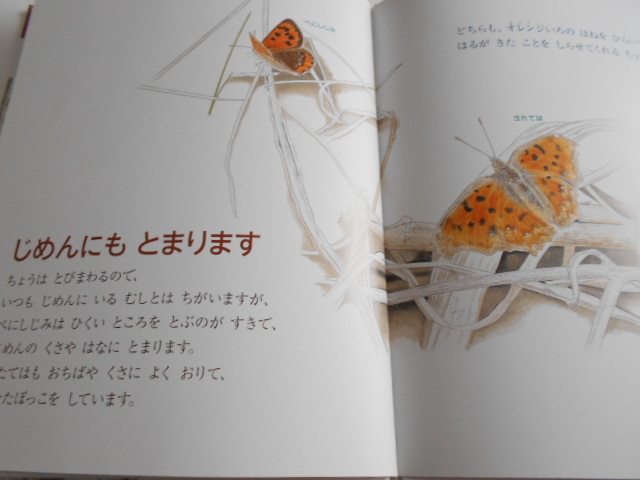 べにしじみ
じめんにも とまります
ちょうは とびまわるので、
いつも じめんに いる むしとは ちがいますが、
べにしじみは ひくい ところを とぶのが すきで、
じめんの くさや はなに とまります。
たても おちばや くさに よく おりて、
たぼっこを しています。
どちらも、オレンジいろの はねを
はるが きた ことを しらせてくれる ちょ
きたては